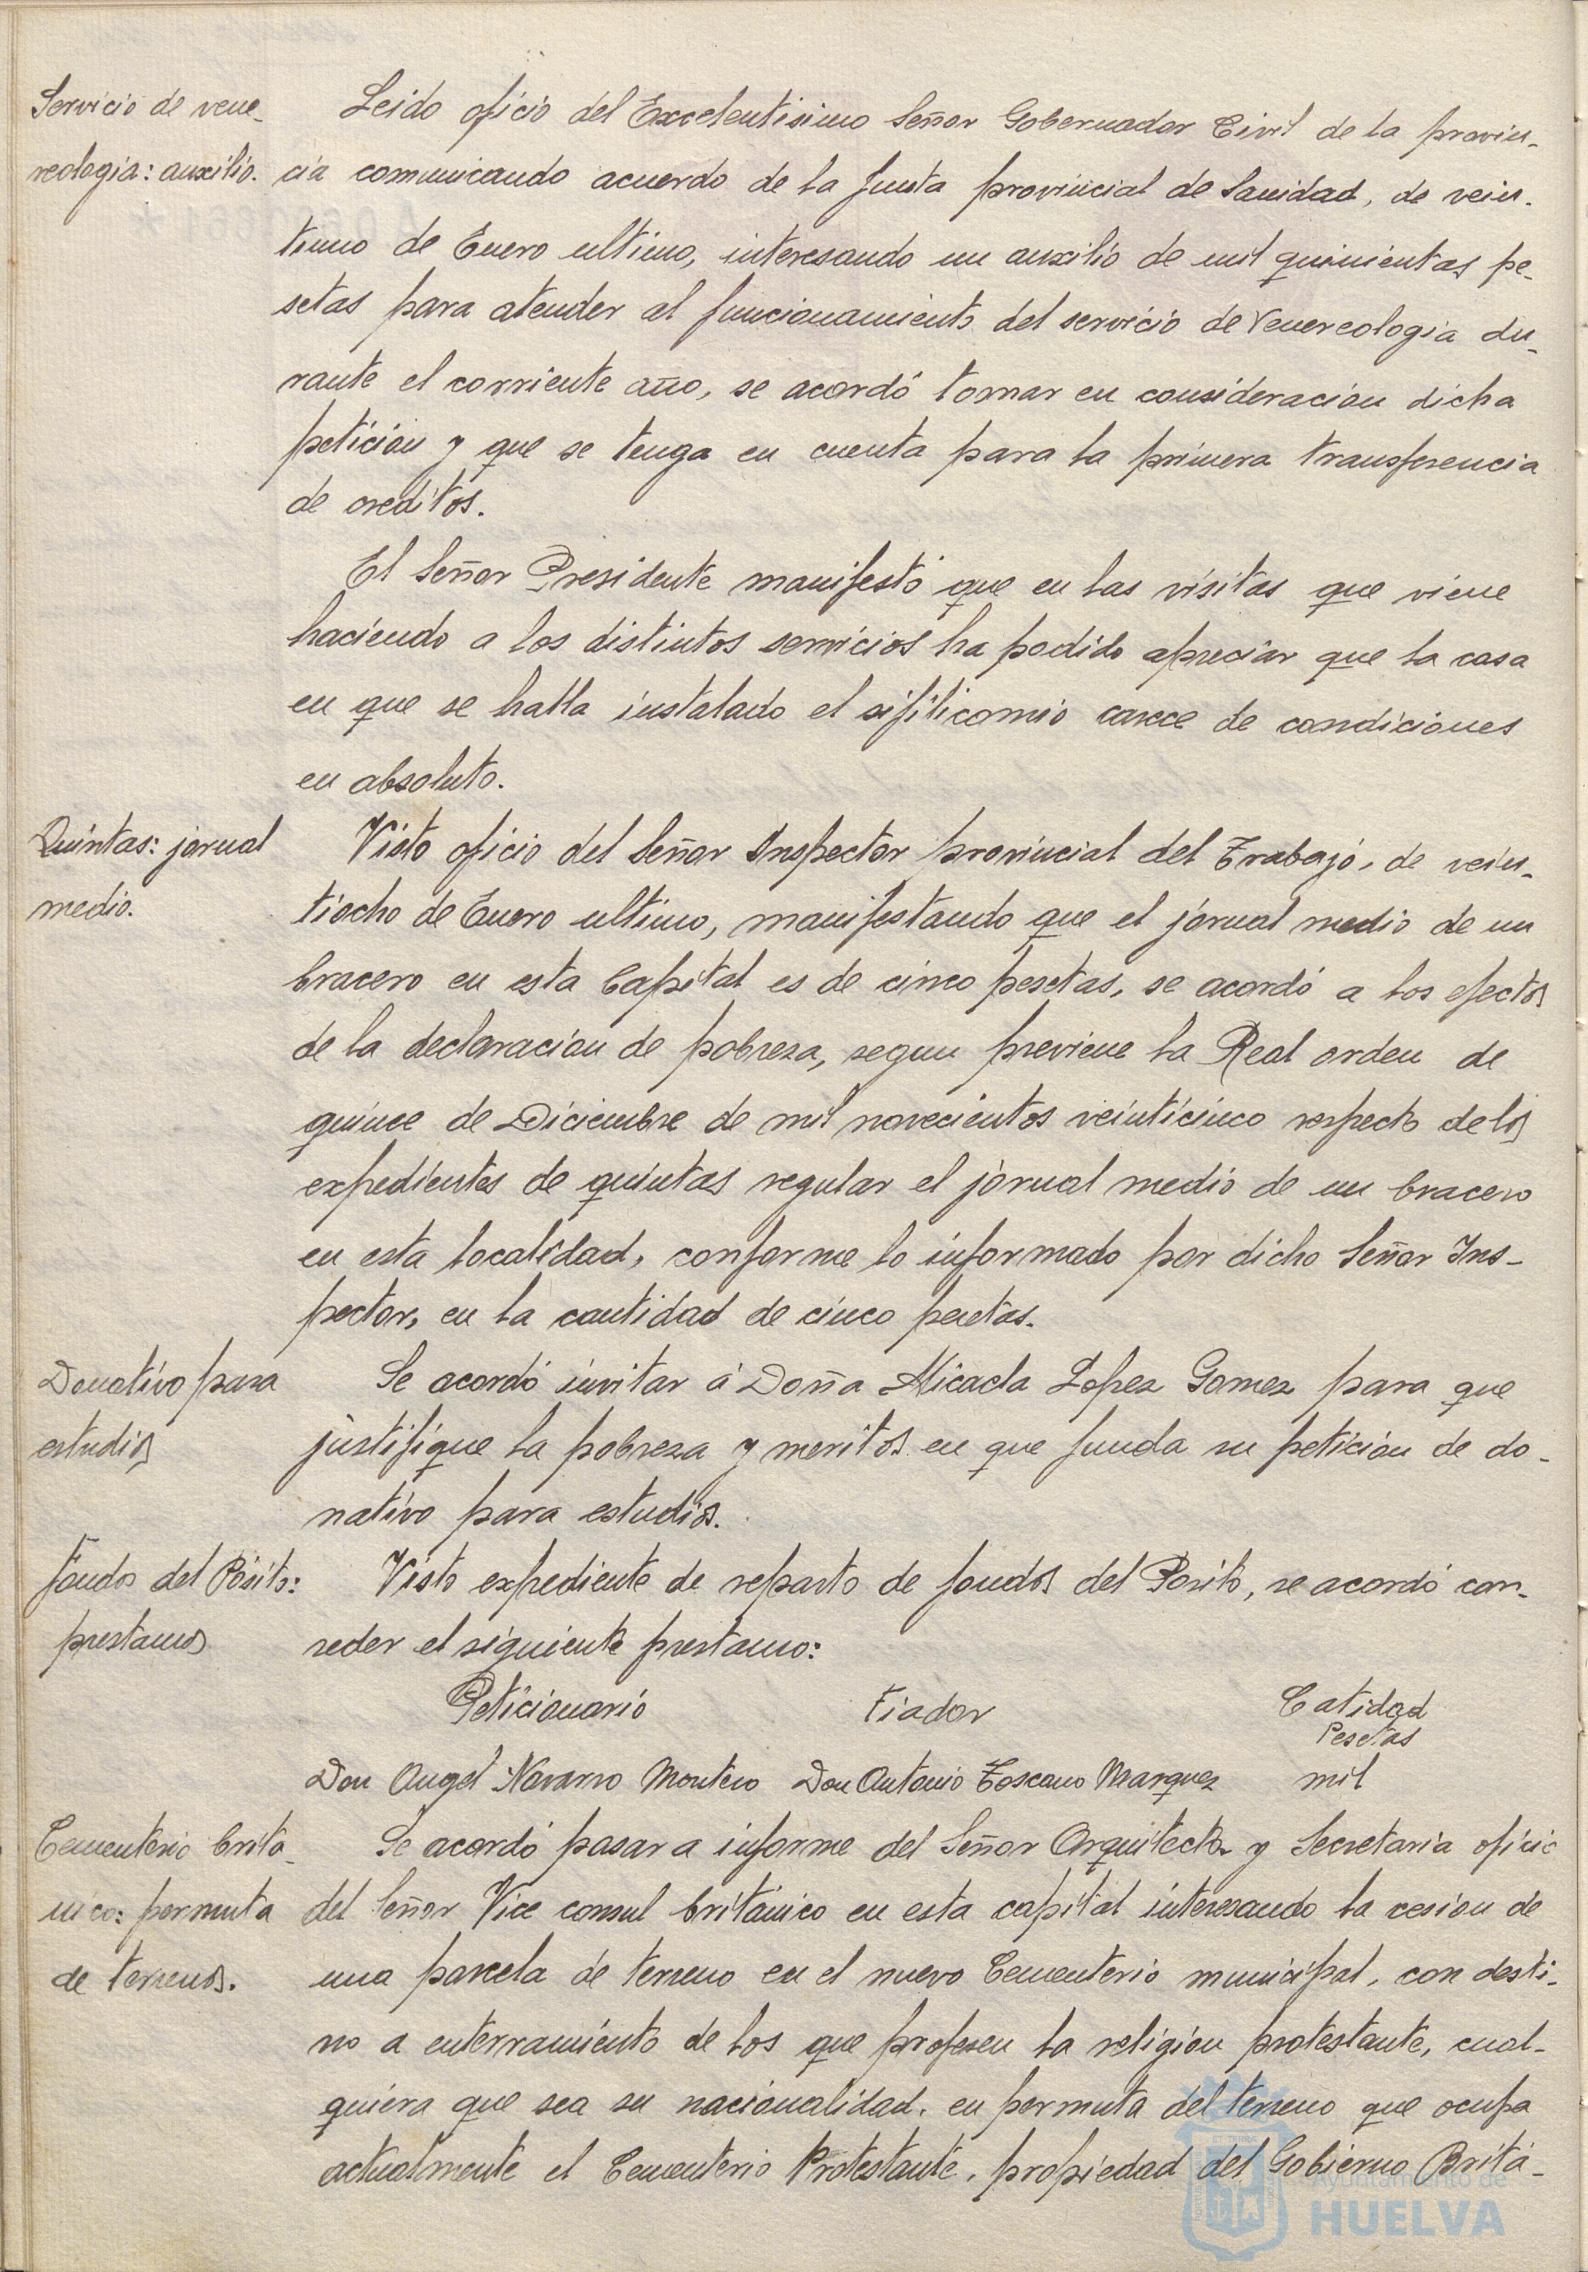 Servicio de vene-
reologia: auxilio.
Leido oficio del Excelentisimo Señor Gobernador Civil de la provin-
cia comunicando acuerdo de la Junta provincial de Sanidad, de vein-
tiuno de Enero ultimo, interesando un auxilio de mil quinientas pe-
setas para atender al funcionamiento del servicio de Venereologia du-
rante el corriente año, se acordó tomar en consideracion dicha
peticion y que se tenga en cuenta para la primera transferencia
de creditos.
El Señor Presidente manifestó que en las visitas que viene
haciendo a los distintos servicios ha podido apreciar que la casa
en que se halla instalado el sifilicomio carece de condiciones
en absoluto.
Quintas: jornal
medio.
Visto oficio del Señor Inspector provincial del Trabajo, de vein-
tiocho de Enero ultimo, manifestando que el jornal medio de un
bracero en esta Capital es de cinco pesetas, se acordó a los efectos
de la declaracion de pobreza, segun previene la Real orden de
quince de Diciembre de mil novecientos veinticinco respecto de los
expedientes de quintas regular el jornal medio de un bracero
en esta localidad, conforme lo informado por dicho Señor Ins-
pector, en la cantidad de cinco pesetas.
Donativo para
estudios
Se acordó invitar á Doña Micaela Lopez Gomez para que
justifique la pobreza y meritos en que funda su peticion de do-
nativo para estudios.
Fondos del Pósito:
prestamos
Visto expediente de reparto de fondos del Posito, se acordó con-
seder el siguiente prestamo:
Peticionario Fiador Catidad
Pesetas
Don Angel Navarro Montero Don Antonio Toscano Marquez mil
Cementerio britá-
nico: permuta
de terrenos.
Se acordó pasar a informe del Señor Arquitecto y Secretaria oficio
del Señor Vice consul británico en esta capital interesando la cesion de
una parcela de terreno en el nuevo Cementerio municipal, con desti-
no a enterramiento de los que profesen la religion protestante, cual-
quiera que sea su nacionalidad, en permuta del terreno que ocupa
actualmente el Cementerio Protestante, propiedad del Gobierno Britá-
Ayuntamiento de
HUELVA